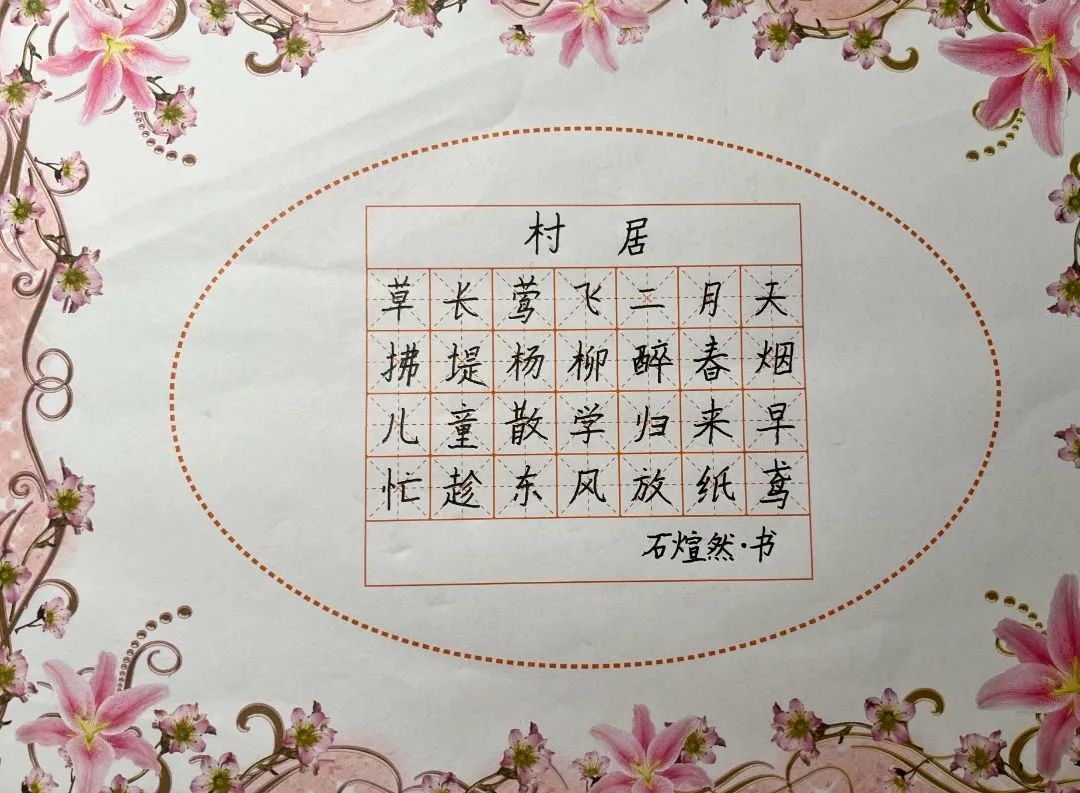 村居
草长莺飞二月天
拂堤杨柳醉春烟
儿童散学归来早
忙趁东风放纸鸢
石煊然·书